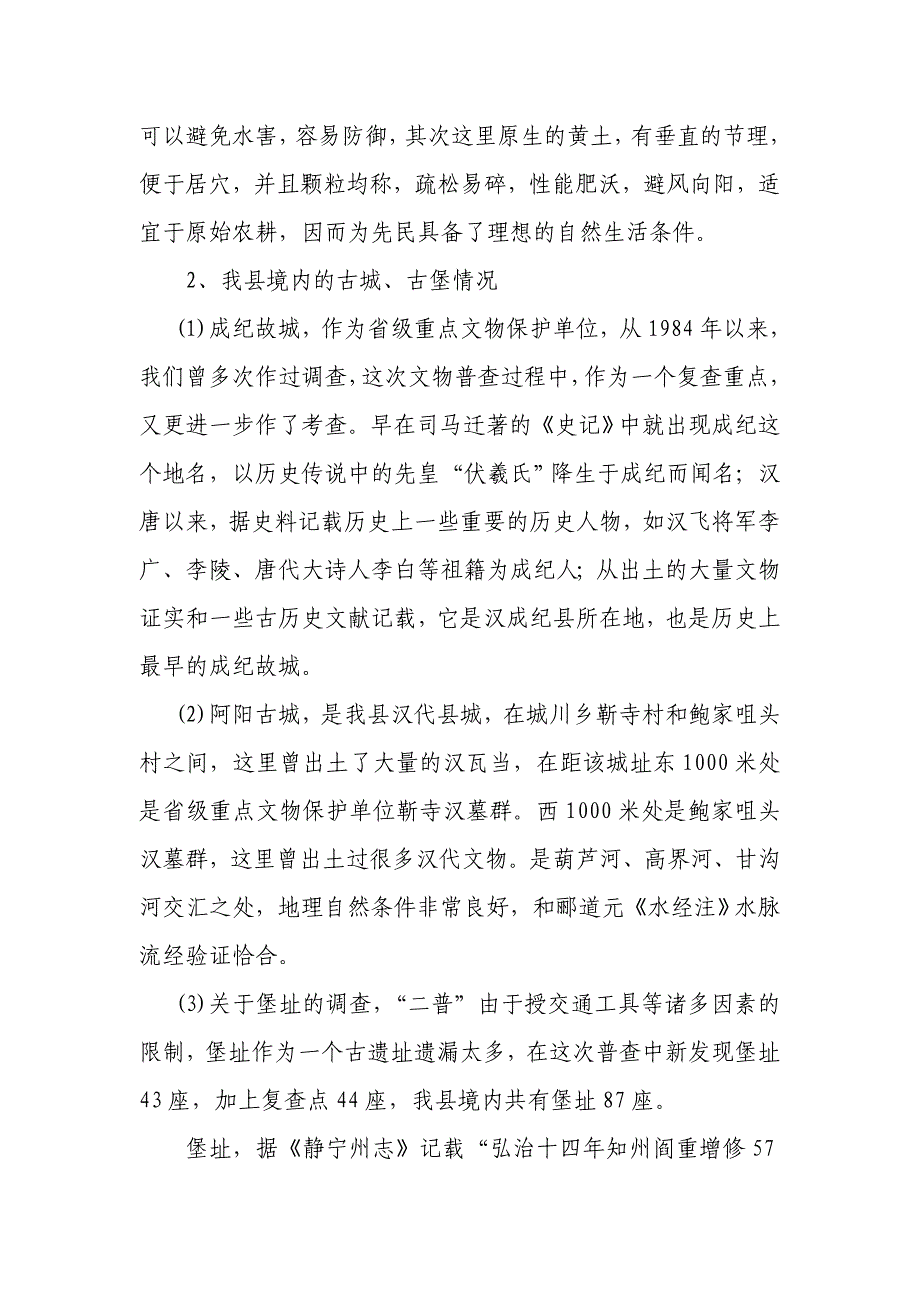 可以避免水害，容易防御，其次这里原生的黄土，有垂直的节理，
便于居穴，并且颗粒均称，疏松易碎，性能肥沃，避风向阳，适
宜于原始农耕，因而为先民具备了理想的自然生活条件。
2、我县境内的古城、古堡情况
(1)成纪故城，作为省级重点文物保护单位，从 1984 年以来，
我们曾多次作过调查，这次文物普查过程中，作为一个复查重点，
又更进一步作了考查。早在司马迁著的《史记》中就出现成纪这
个地名，以历史传说中的先皇“伏羲氏”降生于成纪而闻名；汉
唐以来，据史料记载历史上一些重要的历史人物，如汉飞将军李
广、李陵、唐代大诗人李白等祖籍为成纪人；从出土的大量文物
证实和一些古历史文献记载，它是汉成纪县所在地，也是历史上
最早的成纪故城。
(2)阿阳古城，是我县汉代县城，在城川乡靳寺村和鲍家咀头
村之间，这里曾出土了大量的汉瓦当，在距该城址东 1000 米处
是省级重点文物保护单位靳寺汉墓群。西 1000 米处是鲍家咀头
汉墓群，这里曾出土过很多汉代文物。是葫芦河、高界河、甘沟
河交汇之处，地理自然条件非常良好，和郦道元《水经注》水脉
流经验证恰合。
(3)关于堡址的调查，“二普”由于授交通工具等诸多因素的
限制，堡址作为一个古遗址遗漏太多，在这次普查中新发现堡址
43 座，加上复查点 44 座，我县境内共有堡址 87 座。
堡址，据《静宁州志》记载“弘治十四年知州阎重增修 57